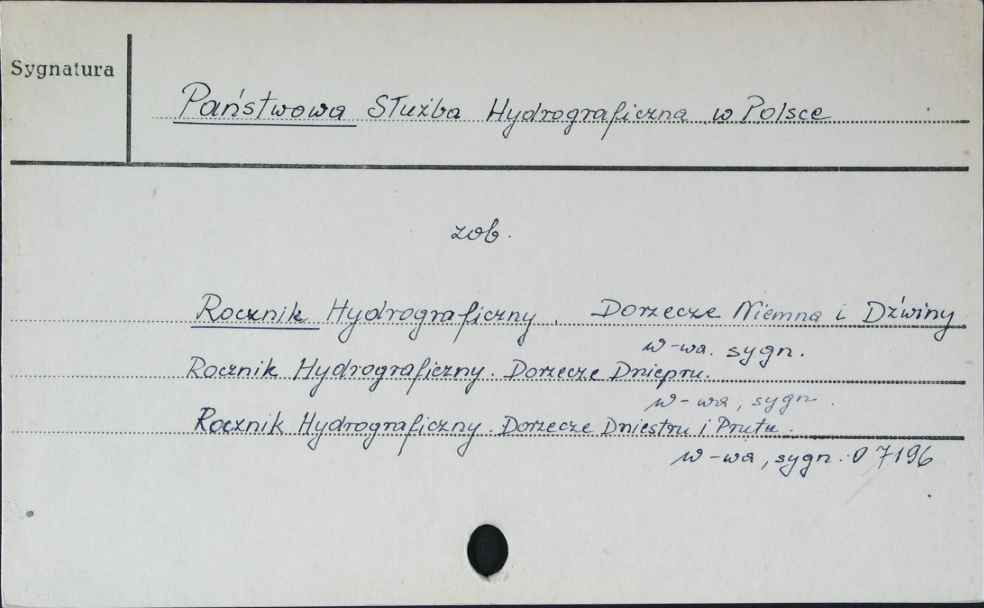 Sygnatura
Państwowa Służba Hydrograficzna w Polsce
zob.
Rocznik Hydrograficzny. Dorzecze Niemna i Dźwiny
W-wa. sygn.
Rocznik Hydrograficzny. Dorzecze Dniepru.
W-wa, sygn.
Rocznik Hydrograficzny. Dorzecze Dniestru i Prutu.
W-wa, sygn. 07196